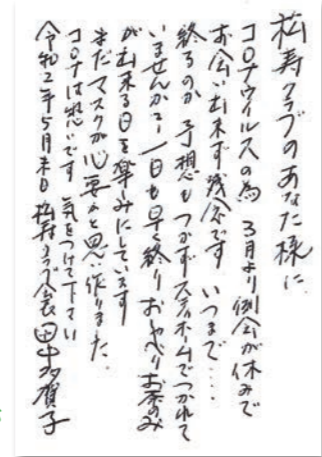 松寿クラブのあなた様に
コロナウイルスの為 3月より例会が休みで
お会い出来ず残念です いつまで‥‥
終るのか 予想もつかずステイホームでつかれて
いませんか？ 一日も早く終り おしゃべりお茶のみ
が出来る日を楽しみにしています
まだマスクが必要かと思い作りました。
コロナは恐いです 気をつけて下さい
令和2年5月末日 松寿クラブ会長 田中多賀子